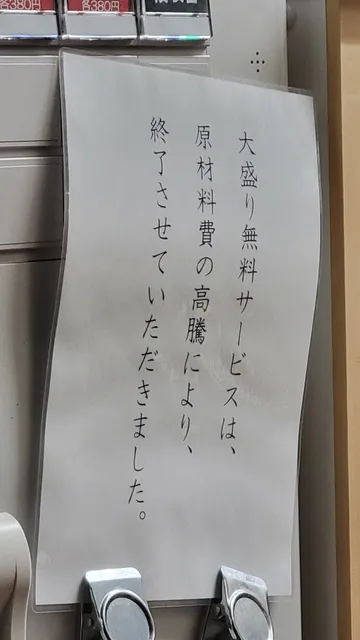 各380円
各380円
大盛り無料サービスは、
原材料費の高騰により、
終了させていただきました。